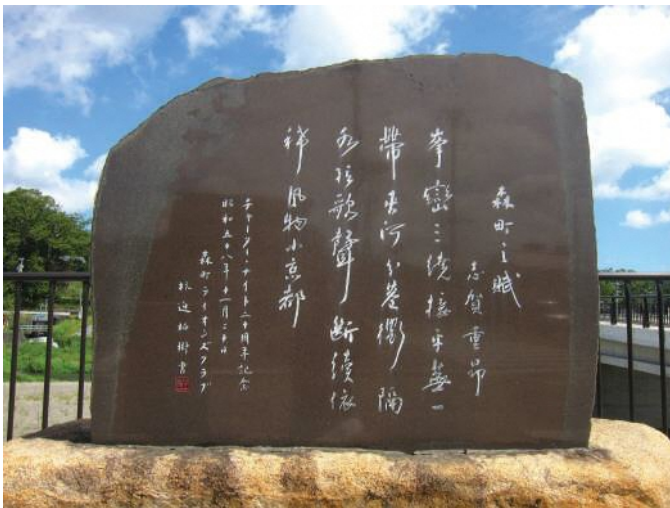 森町之賦
志賀重昂
峯巒三繞接平蕪一
帶長河分巷衢隔
水絃歌聲断續依
稀風物小京都
チャーターナイト二十周年記念
昭和五十八年十一月二十日
森町ライオンズクラブ
書